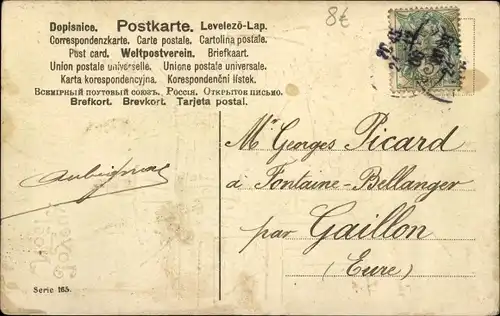 8€
Dopisnice. Postkarte. Levelező-Lap.
Correspondenzkarte. Carte postale. Cartolina postale.
Post card. Weltpostverein. Briefkaart.
Union postale universelle. Unione postale universale.
Karta korespondencyjna. Korespondenční lístek.
Всемірный почтовый союзъ. Россія. Открытое письмо.
Brefkort. Brevkort. Tarjeta postal.
Mr Georges Picard
à Fontaine-Bellanger
par Gaillon
(Eure)
Serie 165.